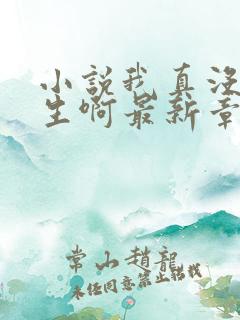 小說我真沒
生啊最新章
常山趙龍
未经同意禁止转载